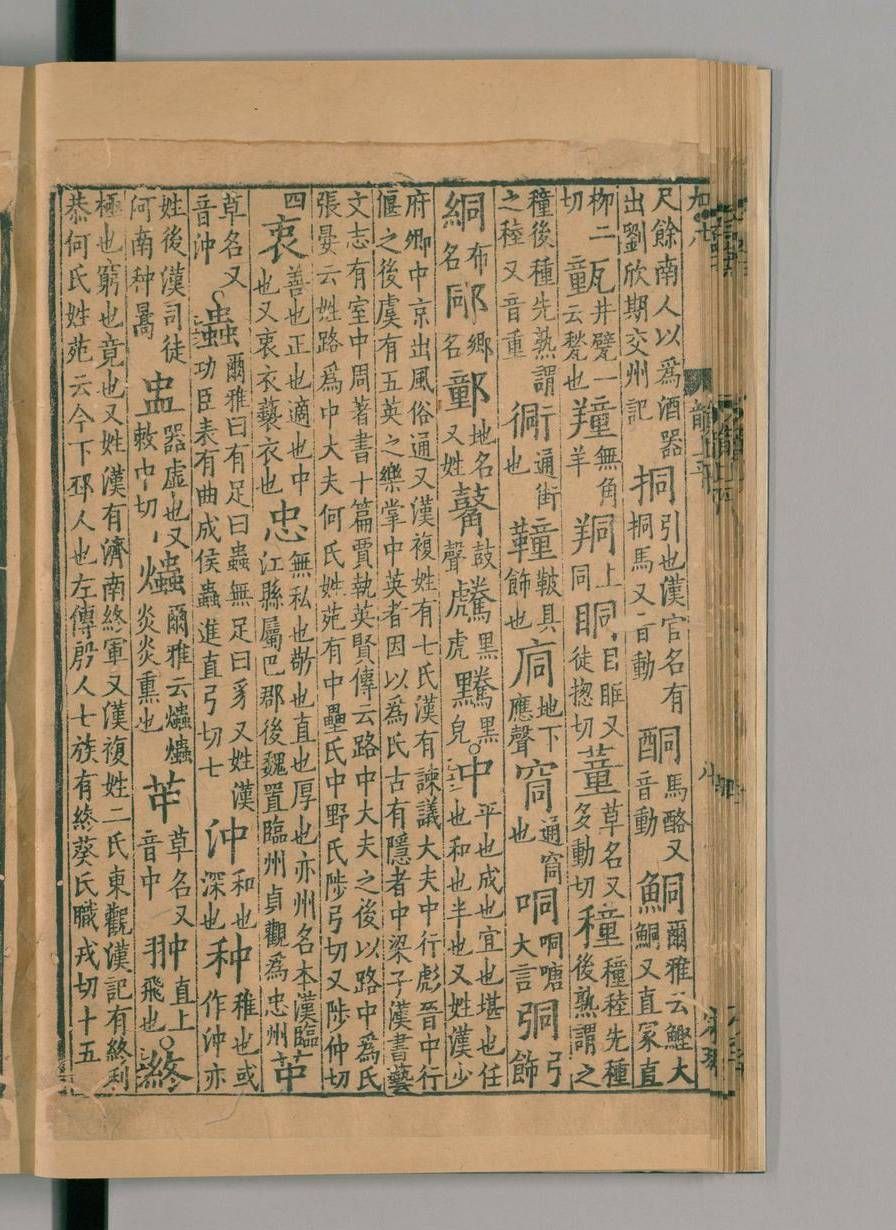 尺餘南人以爲酒器出劉欣期交州記挏引也漢官名有挏馬又音動酮馬酪又音動鮦爾雅云鰹大鮦又直冢直
栁二切井甓一云甃也無角羊上同眮目眶又徒揔切蕫草名又多動切穜穜稑先種後熟謂之
穜後種先熟謂之稑又音重衕通街也鞁具飾也地下應聲通窻也哃哃嗵大言弓飾
絧布名鄉名地名又姓鼓聲黑虎黑皃中平也成也宜也堪也任也和也半也又姓漢少
府卿中京出風俗通又漢複姓有七氏漢有諫議大夫中行彪晉中行偃之後虞有五英之樂掌中英者因以爲氏古有隱者中梁子漢書藝
文志有室中周著書十篇賈執英賢傳云路中大夫之後以路中爲氏張晏云姓路爲中大夫何氏姓苑有中壘氏中野氏陟弓切又陟仲切
四衷善也正也適也中也又衷衣褻衣也忠無私也敬也直也厚也亦州名本漢臨江縣屬巴郡後魏置臨州貞觀爲忠州
草名又音沖蟲爾雅曰有足曰蟲無足曰豸又姓漢功臣表有曲成侯蟲進直弓切七沖和也深也种稚也或作沖亦
姓後漢司徒河南种暠盅器虛也又敕中切爞爾雅云爞爞炎炎熏也草名又音中翀直上飛也終
極也窮也竟也又姓漢有濟南終軍又漢複姓二氏東觀漢記有終利恭何氏姓苑云今下邳人也左傳殷人七族有終葵氏職戎切十五